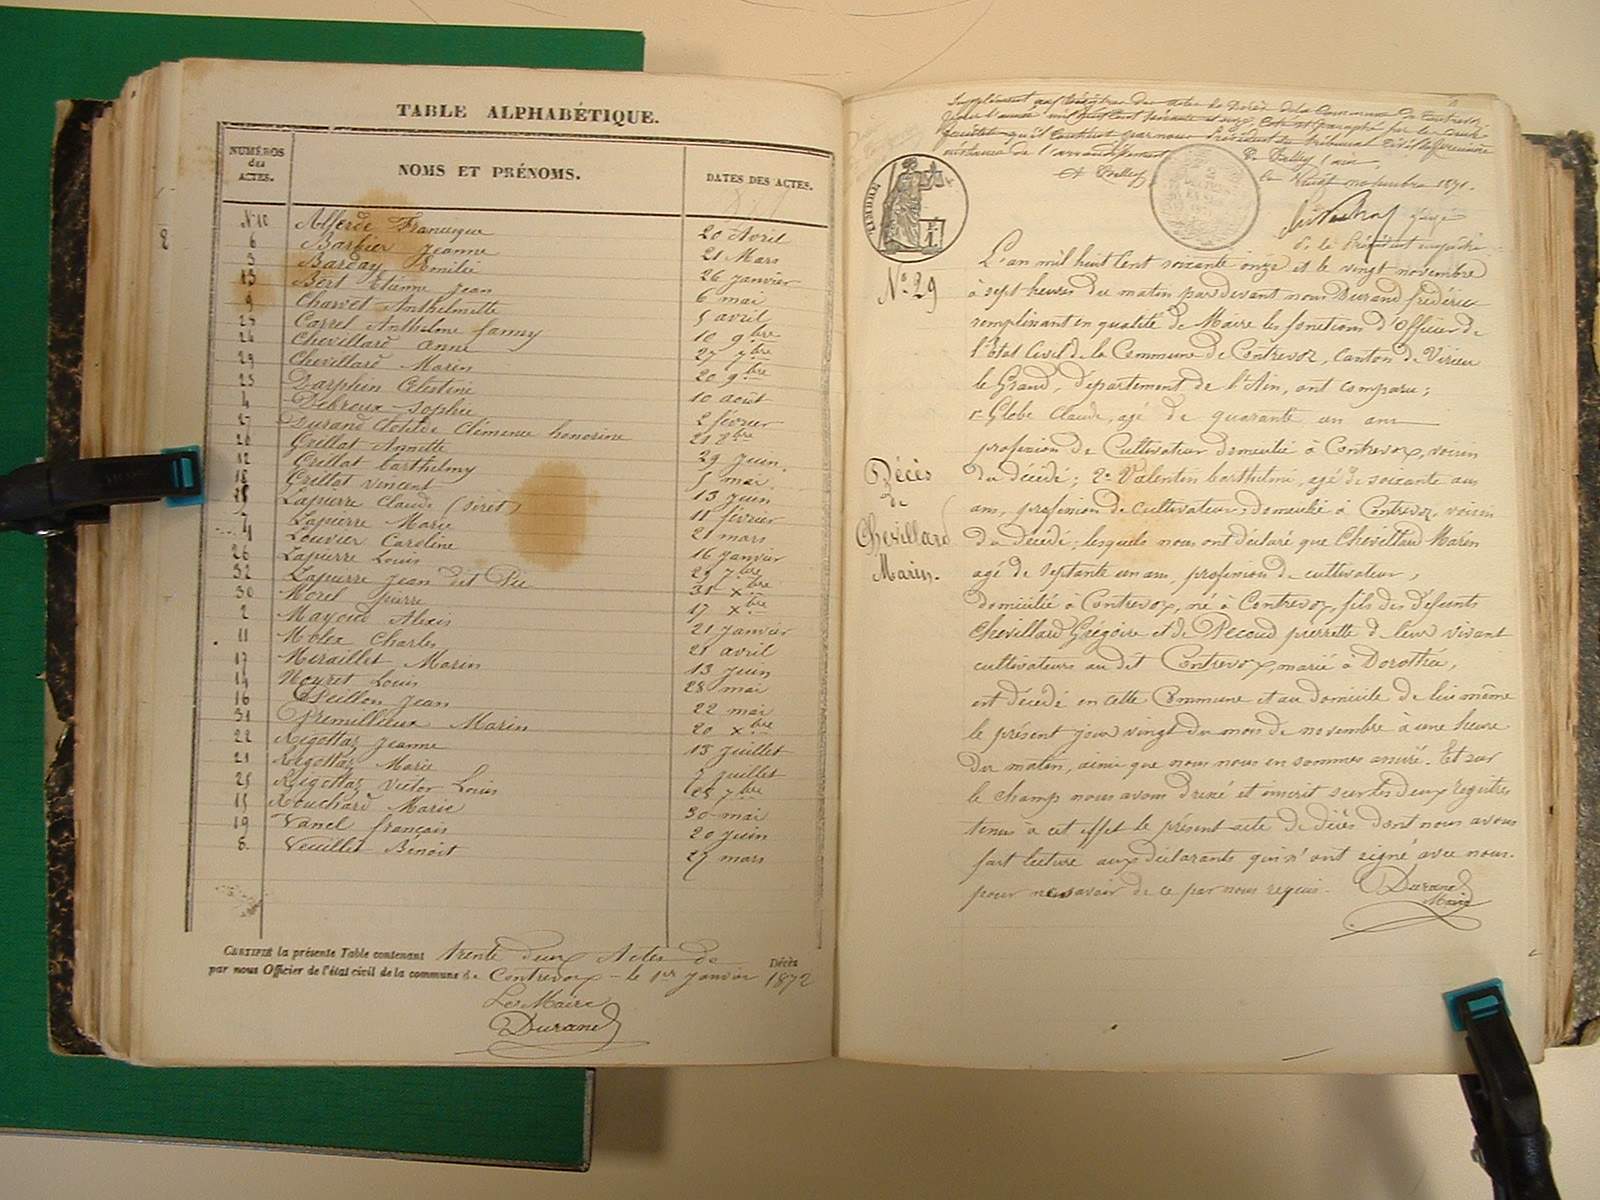 TABLE ALPHABÉTIQUE.
NUMÉROS des ACTES.
NOMS ET PRÉNOMS.
DATES DES ACTES.
N° 10 Alferde Francique 20 Avril
6 Barbier Jeanne 21 Mars
3 Barday Emilie 26 janvier
13 Bert Etienne Jean 6 mai
9 Charvet Anthelmette 5 avril
28 Carrel Anthelme fanny 10 9bre
24 Chevillard Anne 27 7bre
29 Chevillard Marin 20 9bre
23 Darphin Célestine 10 août
4 Debroux Sophie 2 février
27 Durand Clotilde Clémence honorine 21 8bre
20 Grillat Annette 29 juin
12 Grillat barthelmy 5 mai
18 Grillat vincent 13 juin
Lapierre Claude 11 février
7 Lapierre Marie 21 mars
Louvier Caroline 16 janvier
26 Lapierre Louis 29 7bre
32 Lapierre Jean dit Pie 31 xbre
30 Morel pierre 17 xbre
2 Mayoud Alexis 21 janvier
11 Molex Charles 21 avril
17 Miraillet Marin 13 juin
14 Noyret Louis 28 mai
16 Peillon Jean 22 mai
31 Premillieux Marin 20 xbre
22 Rigottaz Jeanne 15 juillet
21 Rigottaz Marie 7 juillet
25 Rigottaz victor Louis 7bre
15 Rouchard Marie 30 mai
19 Vanel françois 20 juin
8 Veuillet Benoit 27 mars
CERTIFIÉ la présente Table contenant trente deux Actes de Décès
par nous Officier de l'état civil de la commune de Contrevoz le 1er janvier 1872
Le Maire
Durand
Supplément au Régitre des actes de Décès de la Commune de Contrevoz
pour l'année mil huit cent soixante et onze, Coté et paraphé par
feuillet qu'il contient par nous Président du tribunal Civil de première
instance de l'arrondissement de Belley (ain
A Belley le Vingt novembre 1871.
juge
p. le Président empêché
TIMBRE
N° 29
L'an mil huit Cent soixante onze et le vingt novembre
à sept heures du matin par devant nous Durand frédéric
remplissant en qualité de Maire les fonctions d'Officier de
l'Etat Civil de la Commune de Contrevoz, Canton de Virieu
le Grand, département de l'Ain, ont comparu;
1° Glebe Claude, agé de quarante un ans
profession de Cultivateur domicilié à Contrevoz, voisin
du décédé; 2° Valentin barthelmi, agé de soixante ans
ans, profession de cultivateur, domicilié à Contrevoz, voisin
du décédé; lesquels nous ont déclaré que Chevillard Marin
agé de septante un ans, profession de cultivateur,
domicilié à Contrevoz, né à Contrevoz, fils des défunts
Chevillard Grégoire et de Pecoud pierrette de leur vivant
cultivateurs au dit Contrevoz, marié à Dorothée,
est décédé en cette Commune et au domicile de lui même
le présent jour vingt du mois de novembre à une heure
du matin, ainsi que nous nous en sommes assuré. Et sur
le champ nous avons dressé et inscrit sur les deux régitres
tenus à cet effet le présent acte de décès dont nous avons
fait lecture aux déclarants qui n'ont signé avec nous.
pour ne savoir de ce par nous requis.
Durand
Maire
Décès
de
Chevillard
Marin.